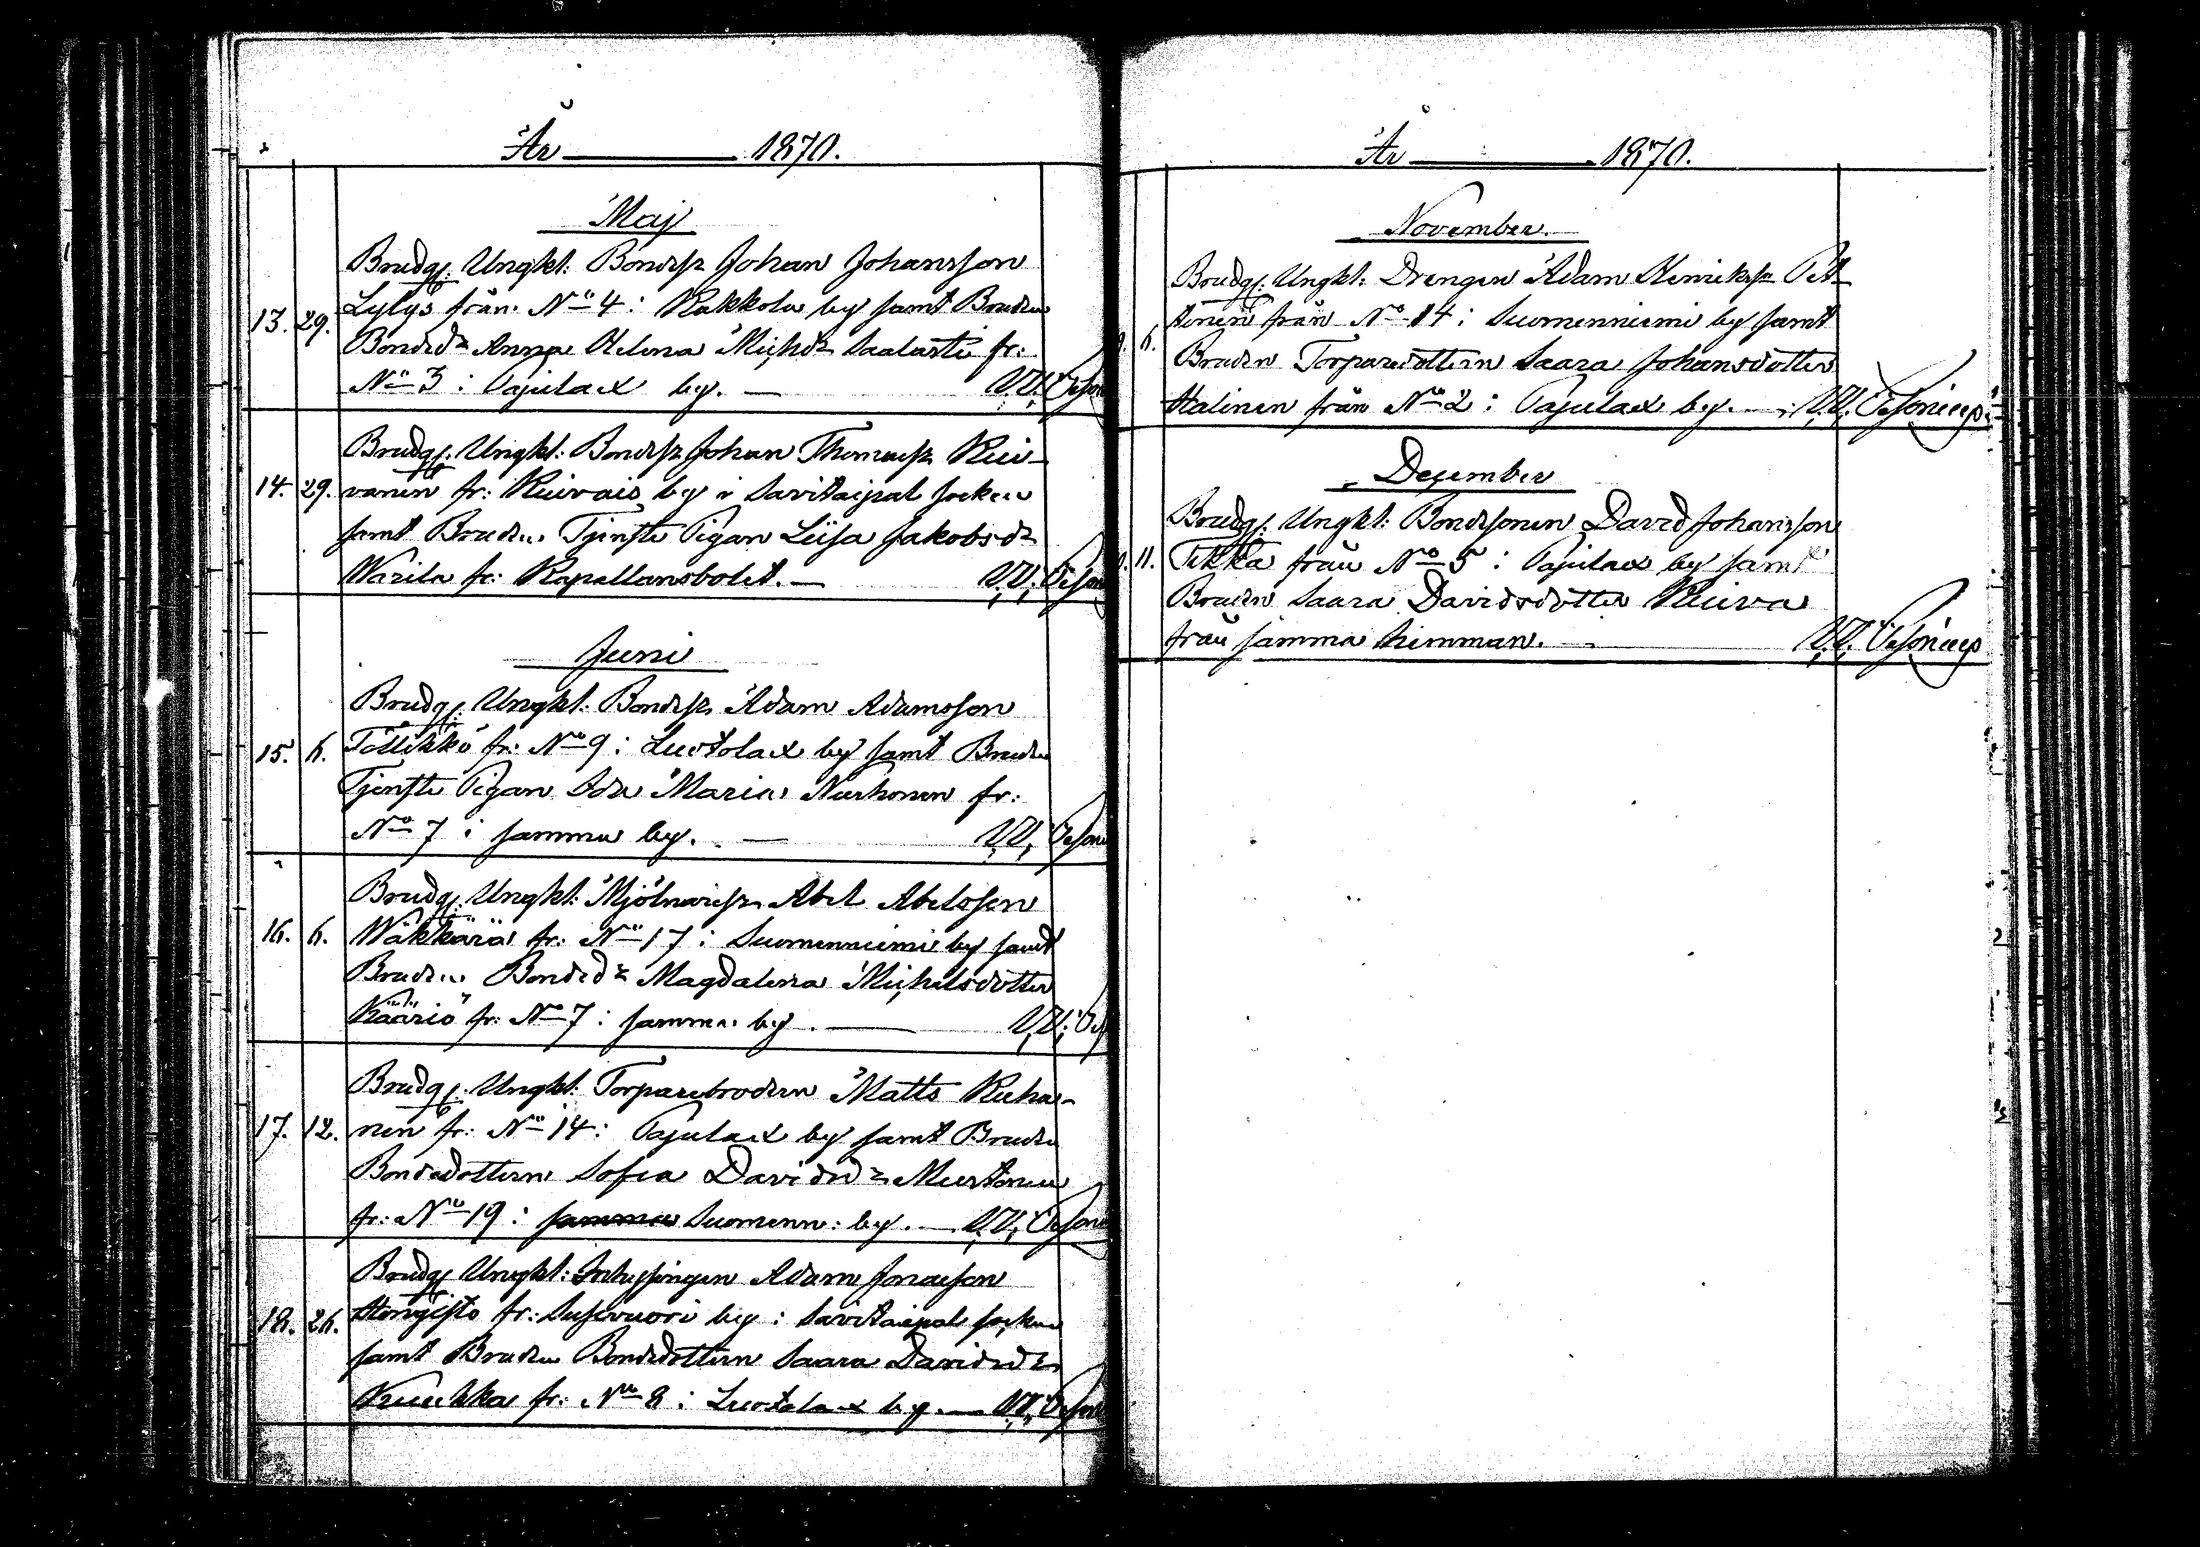 År 1870.
Maj
Brudg. Ungkl. Bondes. Johan Johansson
13. 29. Lylys från No 4 i Kakkola by samt Bruden
Bonded:r Anna Helena Michelsd:r Saalasti fr:
No 3 i Pajulax by. — V.V.
Brudg. Ungkl: Bondes. Johan Thomass. Kui-
14. 29. vanen fr: Kuivais by i Savitaipal socken
samt Bruden Tjenste Pigan Liisa Jakobsd:r
Warila fr: Kapellansbolet. — V.V.
Juni
Brudg. Ungkl. Bondes. Adam Adamsson
15. 6. Töllikkö fr: No 9 i Luotolax by samt Bruden
Tjenste Pigan Ida Maria Nurhonen fr:
No 7 i samma by. — V.V.
Brudg. Ungkl: Mjölnares. Abel Abelsson
16. 6. Wäkkärä fr: No 17 i Suomenniemi by samt
Bruden Bonded:r Magdalena Michelsdotter
Kääriö fr: No 7 i samma by. — V.V.
Brudg. Ungkl. Torparebrodern Matts Kuha-
17. 12. nen fr: No 14 i Pajulax by samt Bruden
Bondedottern Sofia Davidsd:r Murtonen
fr: No 19 i samma Suomenn: by. — V.V.
Brudg. Ungkl: Inhysingen Adam Jonasson
18. 26. Hongisto fr: Susivuori by i Savitaipal socken
samt Bruden Bondedottern Saara Davidsd:r
Kuukka fr: No 8 i Luotolax by. — V.V.
År 1870.
November.
Brudg. Ungkl: Drengen Adam Henrikss. Pet-
6. tinen från No 14 i Suomenniemi by samt
Bruden Torparedottern Saara Johansdotter
Halinen från No 2 i Pajulax by. — V.V.
December
Brudg. Ungkl: Bondesonen David Johansson
11. Tikka från No 5 i Pajulax by samt
Bruden Saara Davidsdotter Kuiva
från samma hemman. — V.V.